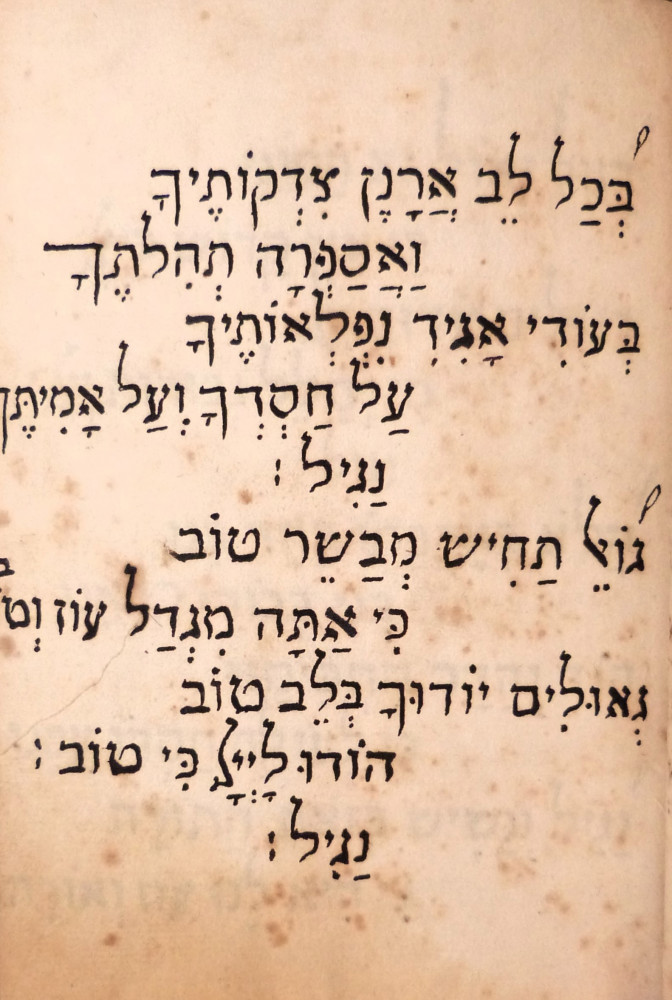 בְּכַל לֵב אֲרַנֶן צִדְקוֹתֶיךָ
וַאֲסַפְּרָה תְהִלתֶךָ
בְּעוֹדִי אַגִיד נִפְלְאוֹתֶיךָ
עַל חַסְדְךָ וְעַל אֲמִיתֶּךָ
נַגִיל :
גוֹאֵל תַחִיש מְבַשֵר טוֹב
כִּי אַתָּה מִגְדַל עוֹז וְטוֹ
גְאוּלִים יוֹדוּךָ בְּלֵב טוֹב
הוֹדוּ לַיְיָ כִּי טוֹב :
נַגִיל :